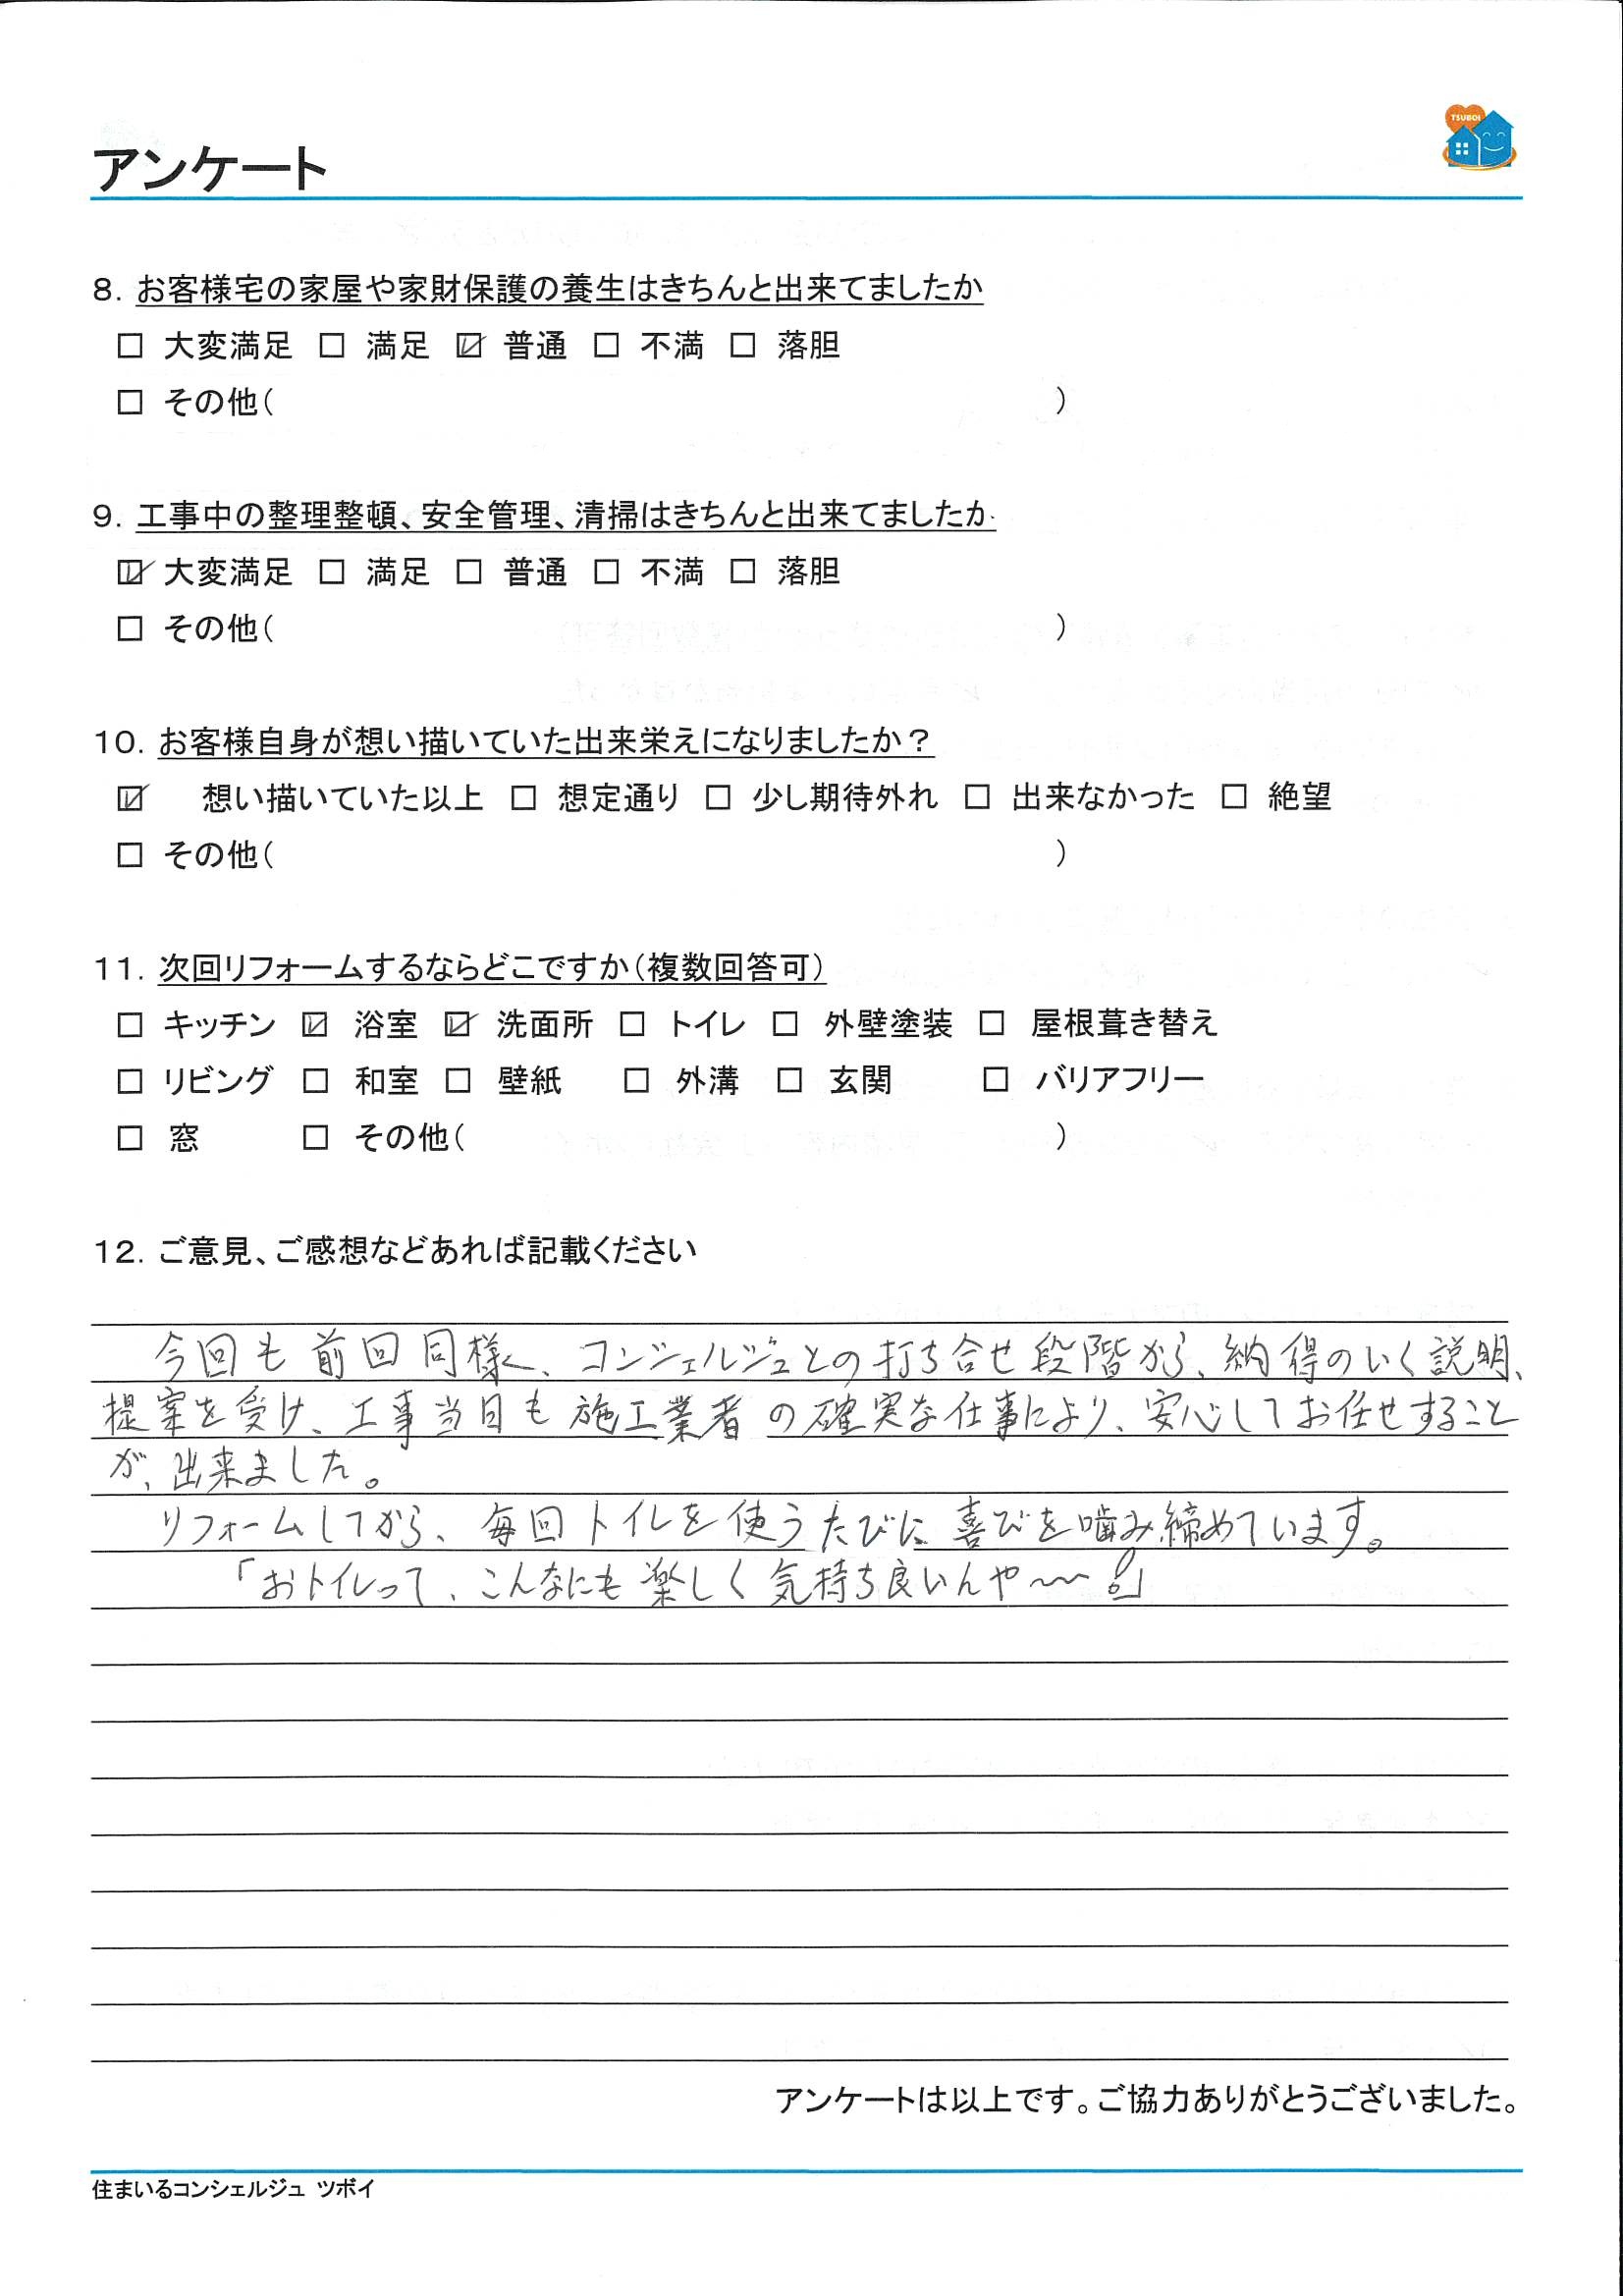 アンケート
TSUBOI
8. お客様宅の家屋や家財保護の養生はきちんと出来てましたか
□ 大変満足 □ 満足 ☑ 普通 □ 不満 □ 落胆
□ その他( )
9. 工事中の整理整頓、安全管理、清掃はきちんと出来てましたか
☑ 大変満足 □ 満足 □ 普通 □ 不満 □ 落胆
□ その他( )
10. お客様自身が想い描いていた出来栄えになりましたか?
☑ 想い描いていた以上 □ 想定通り □ 少し期待外れ □ 出来なかった □ 絶望
□ その他( )
11. 次回リフォームするならどこですか(複数回答可)
□ キッチン ☑ 浴室 ☑ 洗面所 □ トイレ □ 外壁塗装 □ 屋根葺き替え
□ リビング □ 和室 □ 壁紙 □ 外溝 □ 玄関 □ バリアフリー
□ 窓 □ その他( )
12. ご意見、ご感想などあれば記載ください
今回も前回同様、コンシェルジュとの打ち合せ段階から、納得のいく説明、
提案を受け、工事当日も施工業者の確実な仕事により、安心してお任せすること
が、出来ました。
リフォームしてから、毎回トイレを使うたびに喜びを噛み締めています。
「おトイレって、こんなにも楽しく気持ち良いんや〜〜!」
アンケートは以上です。ご協力ありがとうございました。
住まいるコンシェルジュ ツボイ